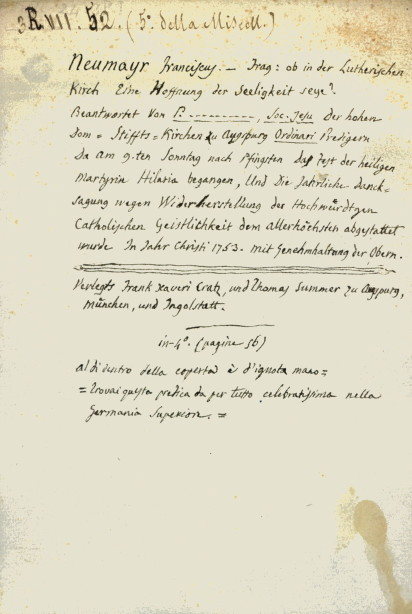 3R.VII. 52. (5º. della Miscell.)
Neumayr Franciscus. - Frag: ob in der Lutherischen
Kirch Eine Hoffnung der Seeligkeit seye?
Beantwortet Von P. ----------, Soc. Jesu der hohen
Dom = Stiffts = Kirchen zu Augspurg Ordinari Predigern
Da Am 9.ten Sonntag nach Pfingsten Das Fest der heiligen
Martyrin Hilaria begangen, Und Die Jährliche Danck=
sagung wegen Widerherstellung der Hochwürdtgen
Catholischen Geistlichkeit dem allerhöchsten abgestattet
wurde In Jahr Christi 1753. mit Genehmhaltung der Obern.
Verlegts Frank Xaveri Cratz, und Thomas Summer zu Augspurg,
München, und Ingolstatt.
in-4º. (pagine 56)
al di dentro della coperta è d'ignota mano=
= Trovai questa predica da per tutto celebratissima nella
Germania Superiore. =